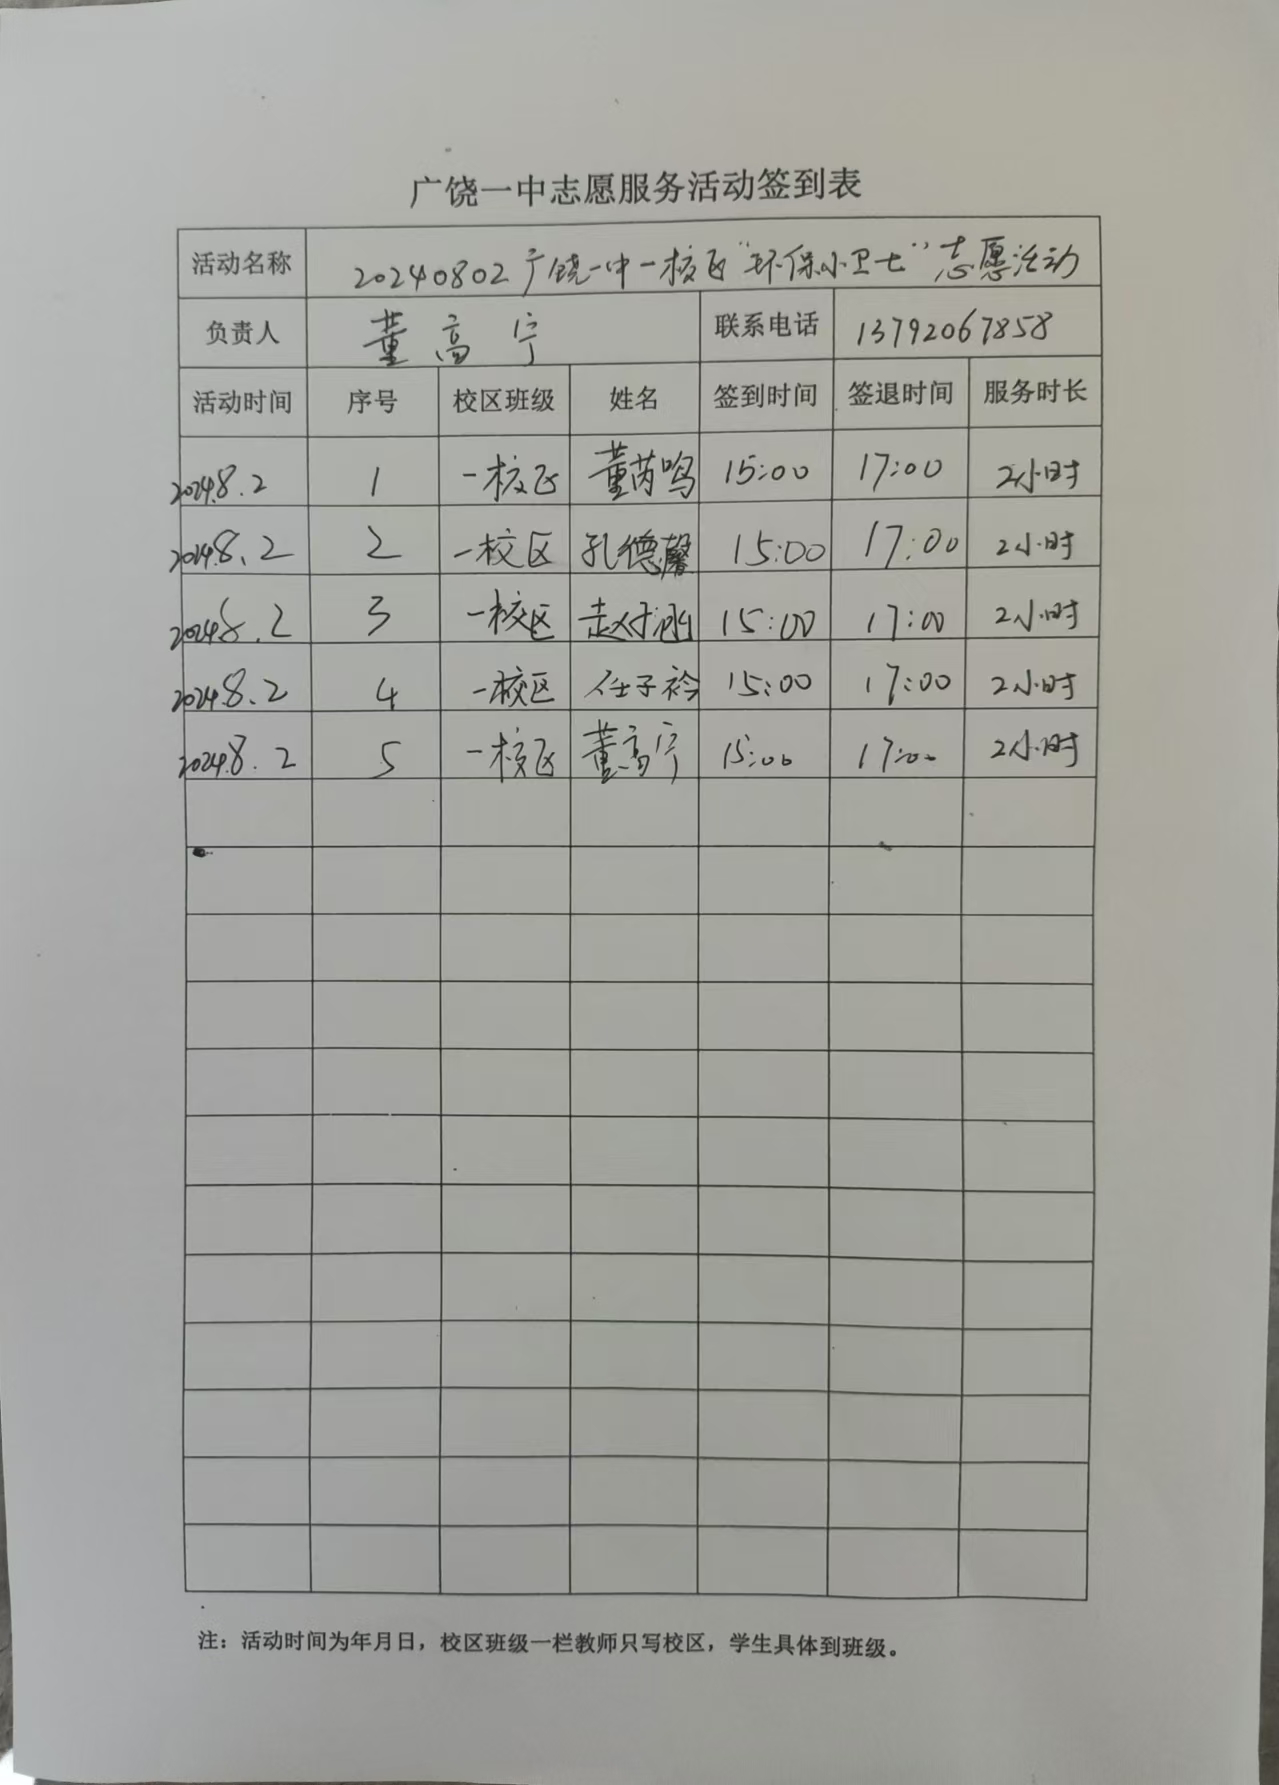 广饶一中志愿服务活动签到表
活动名称 20240802广饶一中一校区“环保小卫士”志愿活动
负责人 董高宁 联系电话 13792067858
活动时间 序号 校区班级 姓名 签到时间 签退时间 服务时长
2024.8.2 1 一校区 董芮鸣 15:00 17:00 2小时
2024.8.2 2 一校区 孔德馨 15:00 17:00 2小时
2024.8.2 3 一校区 15:00 17:00 2小时
2024.8.2 4 一校区 任子衿 15:00 17:00 2小时
2024.8.2 5 一校区 董高宁 15:00 17:00 2小时
注：活动时间为年月日，校区班级一栏教师只写校区，学生具体到班级。